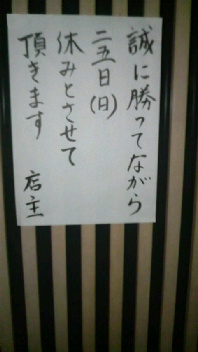 誠に勝ってながら
二五日(日)
休みとさせて
頂きます 店主